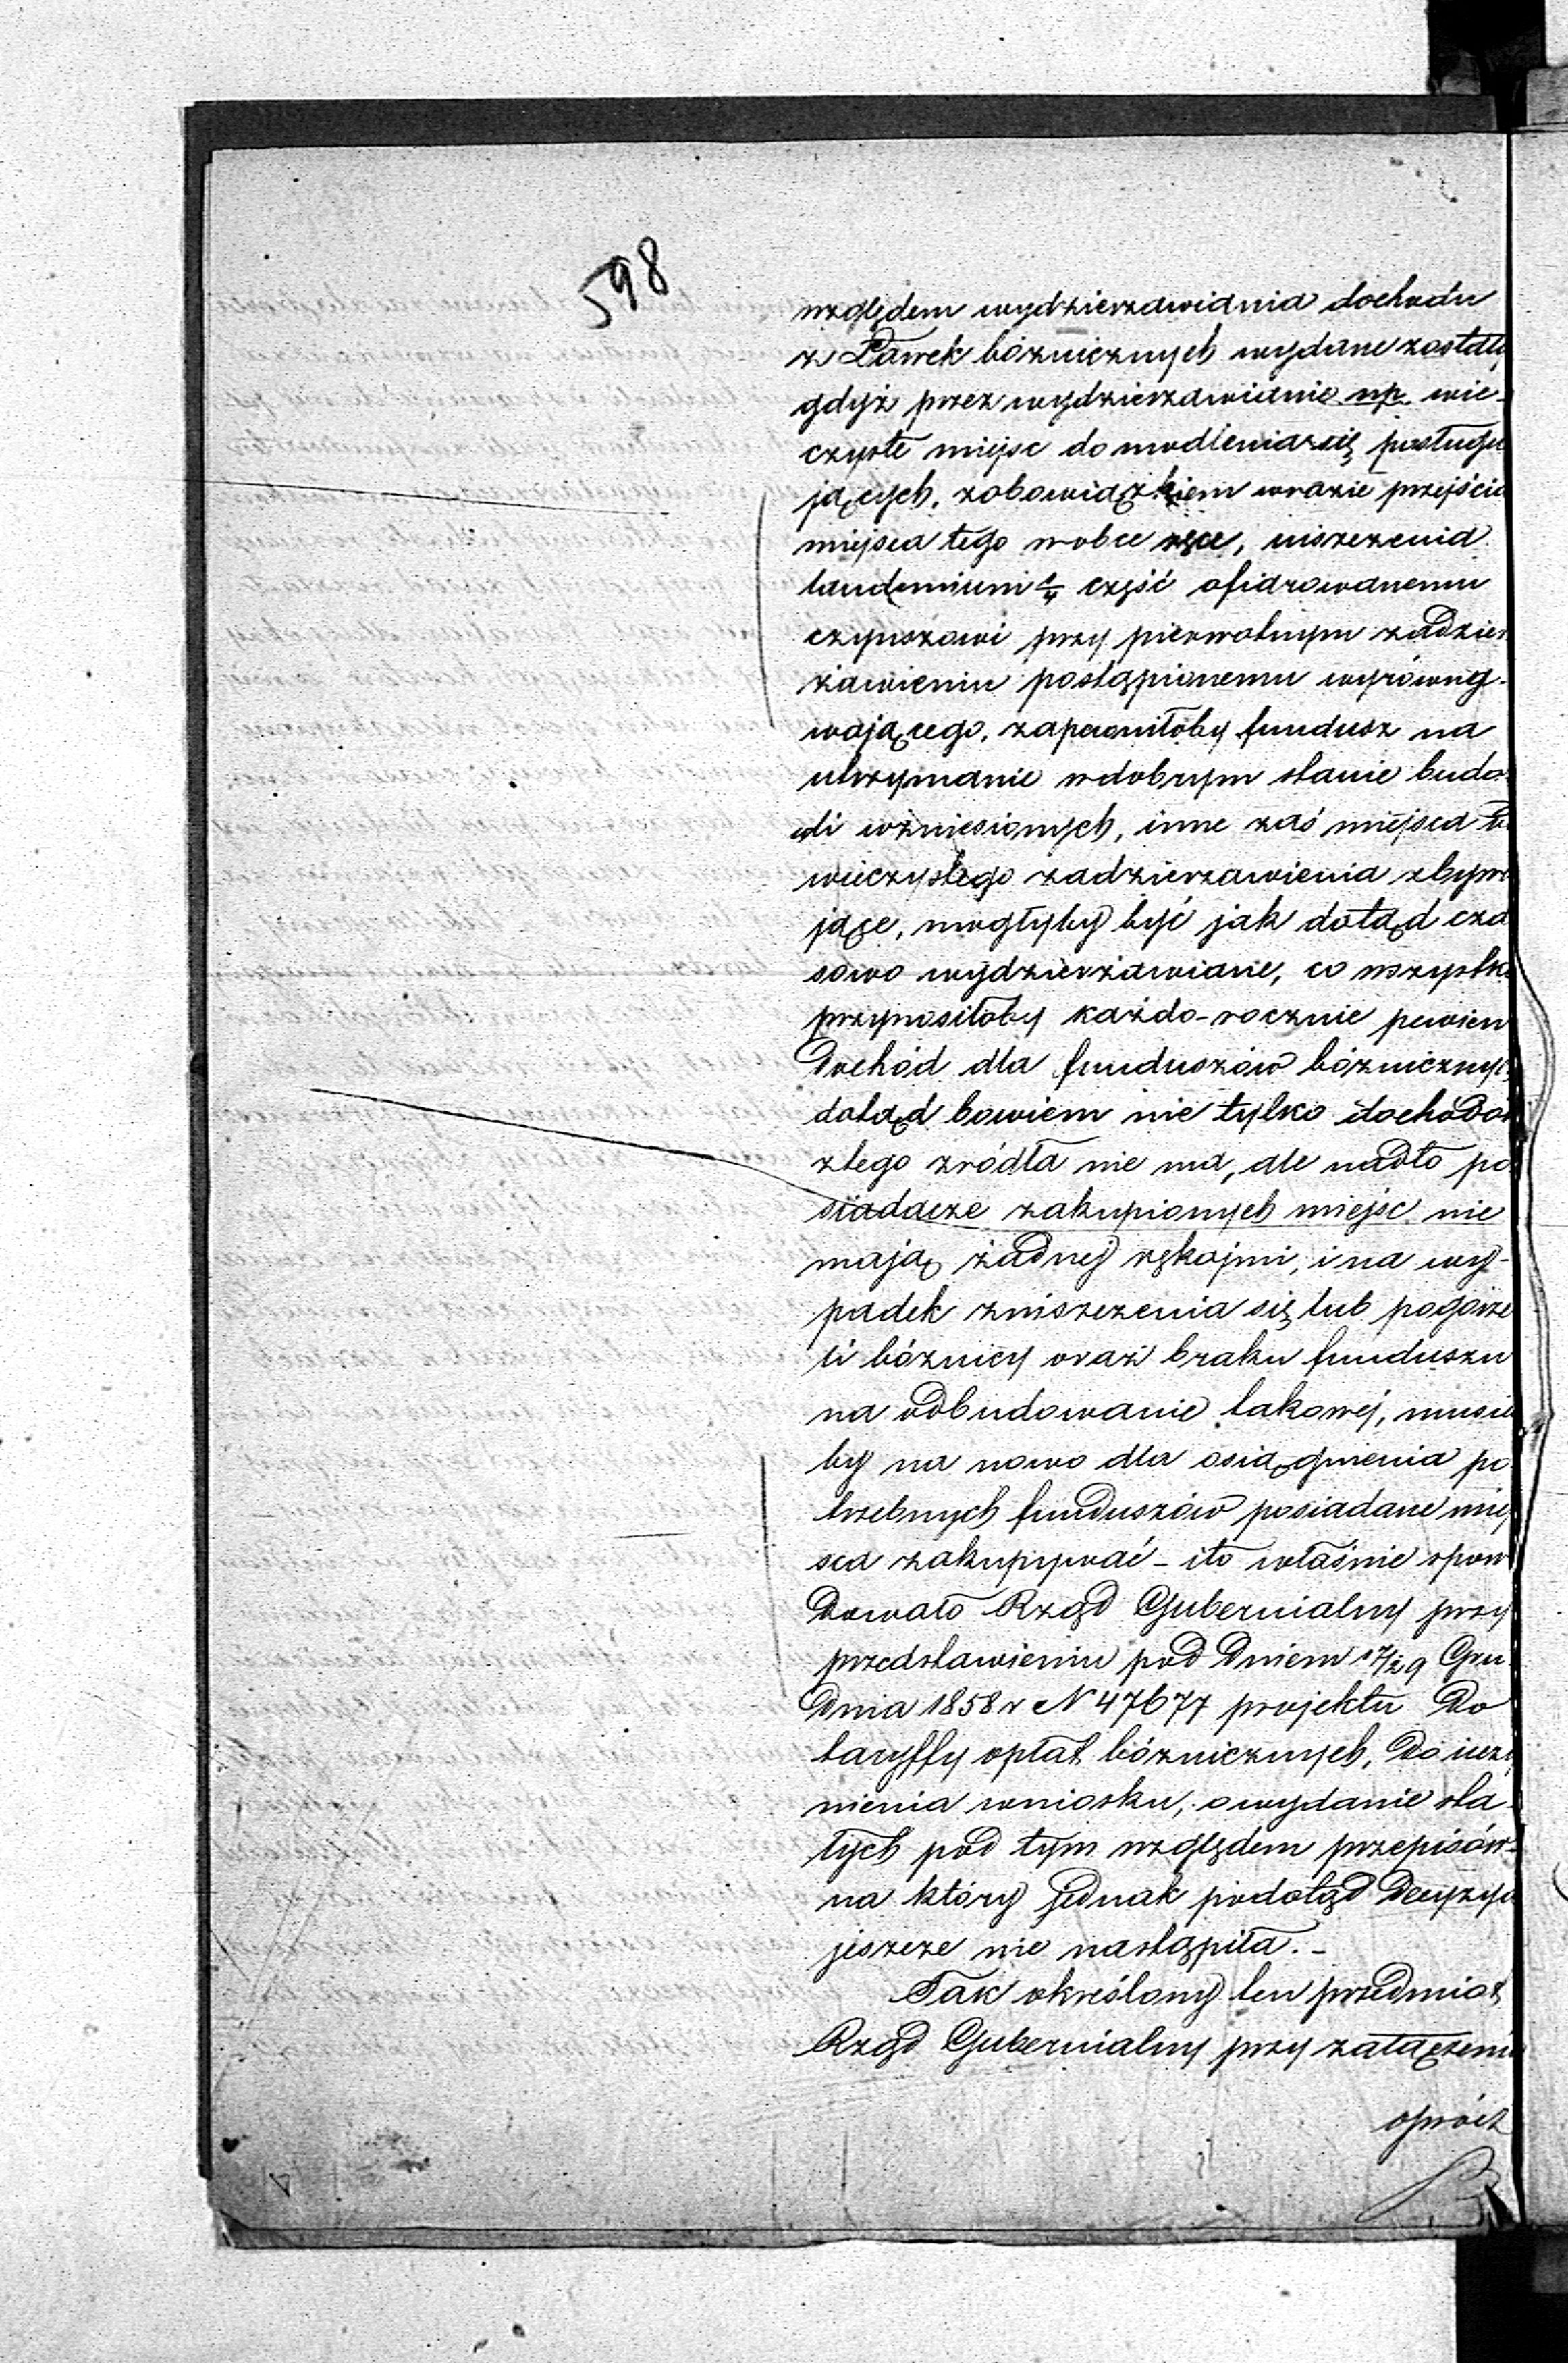 598
względem wydzierzawiania dochodu
z Ławek bóżnicznych wydane zostały
gdyż przez wydzierzawianie np. wie-
czyste miejsc do modlenia się posługu
jących, z obowiązkiem w razie przejścia
miejsca tego w obce ręce, uiszczenia
laudemium 1/4 część ofiarowanemu
czynszowi przy pierwotnym zadzier
żawieniu postąpionemu wyrówny-
wającego, zapewniłoby fundusz na
utrzymanie w dobrym stanie budo-
wli wzniesionych, inne zaś miejsca od
wieczystego zadzierzawienia zbywa
jące, mogłyby być jak dotąd cza
sowo wydzierżawiane, co wszystko
przynosiłoby każdo-rocznie pewien
dochód dla funduszów bóżnicznych
dotąd bowiem nie tylko dochodów
z tego zródła nie ma, ale nadto po
siadacze zakupionych miejsc nie
mają żadnej rękojmi, i na wy-
padek zniszczenia się lub pogorze
li bóżnicy oraz braku funduszu
na odbudowanie takowéj, musie
by na nowo dla osiągnienia po
trzebnych funduszów posiadane miej
sca zakupywać - i to właśnie spowo
dowało Rząd Gubernialny przy
przedstawieniu pod dniem 17/29 Gru
dnia 1858 r N 47677 projektu do
taryffy opłat bóżnicznych, do uczy
nienia wniosku, o wydanie sta-
łych pod tym względem przepisów-
na który jednak podotąd decyzya
jeszcze nie nastąpiła. -
Tak określony ten przedmiot
Rząd Gubernialny przy załączeniu
oprócz